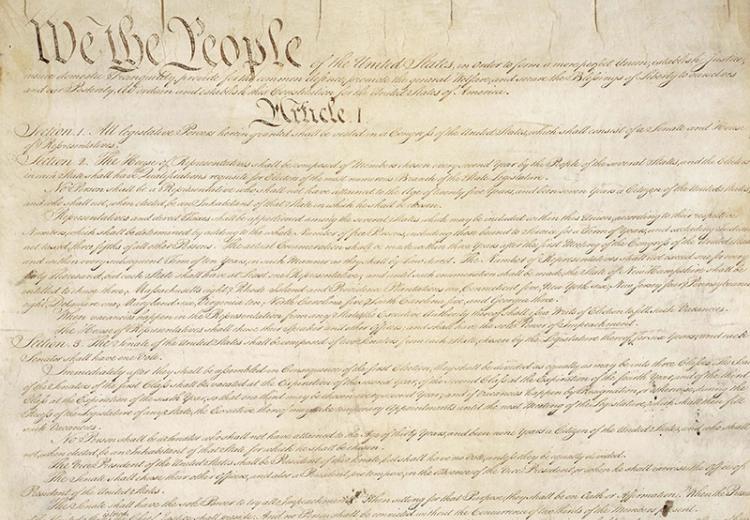 We the People of the United States, in Order to form a more perfect Union, establish Justice,
insure domestic Tranquility, provide for the common defence, promote the general Welfare, and secure the Blessings of Liberty to ourselves
and our Posterity, do ordain and establish this Constitution for the United States of America.
Article. I.
Section. 1. All legislative Powers herein granted shall be vested in a Congress of the United States, which shall consist of a Senate and House
of Representatives.
Section. 2. The House of Representatives shall be composed of Members chosen every second Year by the People of the several States, and the Electors
in each State shall have Qualifications requisite for Electors of the most numerous Branch of the State Legislature.
No Person shall be a Representative who shall not have attained to the Age of twenty five Years, and been seven Years a Citizen of the United States,
and who shall not, when elected, be an Inhabitant of that State in which he shall be chosen.
Representatives and direct Taxes shall be apportioned among the several States which may be included within this Union, according to their respective
Numbers, which shall be determined by adding to the whole Number of free Persons, including those bound to Service for a Term of Years, and excluding Indians
not taxed, three fifths of all other Persons. The actual Enumeration shall be made within three Years after the first Meeting of the Congress of the United States,
and within every subsequent Term of ten Years, in such Manner as they shall by Law direct. The Number of Representatives shall not exceed one for every
thirty Thousand, but each State shall have at Least one Representative; and until such enumeration shall be made, the State of New Hampshire shall be
entitled to chuse three, Massachusetts eight, Rhode-Island and Providence Plantations one, Connecticut five, New-York six, New Jersey four, Pennsylvania
eight, Delaware one, Maryland six, Virginia ten, North Carolina five, South Carolina five, and Georgia three.
When vacancies happen in the Representation from any State, the Executive Authority thereof shall issue Writs of Election to fill such Vacancies.
The House of Representatives shall chuse their Speaker and other Officers; and shall have the sole Power of Impeachment.
Section. 3. The Senate of the United States shall be composed of two Senators from each State, chosen by the Legislature thereof, for six Years; and each
Senator shall have one Vote.
Immediately after they shall be assembled in Consequence of the first Election, they shall be divided as equally as may be into three Classes. The Seats
of the Senators of the first Class shall be vacated at the Expiration of the second Year, of the second Class at the Expiration of the fourth Year, and of the third
Class at the Expiration of the sixth Year, so that one third may be chosen every second Year; and if Vacancies happen by Resignation, or otherwise, during the
Recess of the Legislature of any State, the Executive thereof may make temporary Appointments until the next Meeting of the Legislature, which shall then fill
such Vacancies.
No Person shall be a Senator who shall not have attained to the Age of thirty Years, and been nine Years a Citizen of the United States, and who shall
not, when elected, be an Inhabitant of that State for which he shall be chosen.
The Vice President of the United States shall be President of the Senate, but shall have no Vote, unless they be equally divided.
The Senate shall chuse their other Officers, and also a President pro tempore, in the Absence of the Vice President, or when he shall exercise the Office of
President of the United States.
The Senate shall have the sole Power to try all Impeachments. When sitting for that Purpose, they shall be on Oath or Affirmation. When the
shall preside: And no Person shall be convicted without the Concurrence of two thirds of the Members present.